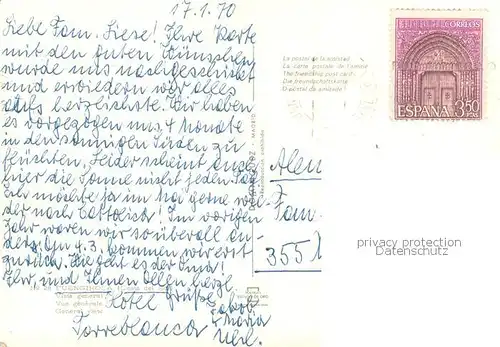 17.1.70
Liebe Fam. Liese! Ihre Karte
mit den guten Wünschen
wurde uns nachgeschickt
und erwiedern wir alles
aufs herzlichste. Wir haben
es vorgezogen uns 4 Monate
in den sonnigen Süden zu
flüchten, leider scheint auch
hier die Sonne nicht jeden Tag
Ich möchte ja um gerne wie-
der nach Cattolica! Im vorigen
Jahr waren wir so überall an-
derz. Am 4.3. kommen wir erst
zurück. Wie geht es der Oma?
Ihr, und Ihnen Allen herzl.
Hotel Grüße
Torreblanca
Jakob
+ Maria
Uhl.
Vista general
Vue générale
General view
La postal de la amistad
La carte postale de l'amitié
The friendship post card
Die freundschaftskarte
O postal da amizade
CORREOS
ESPAÑA 3,50 PTAS
An
Fam.
355
privacy protection
Datenschutz